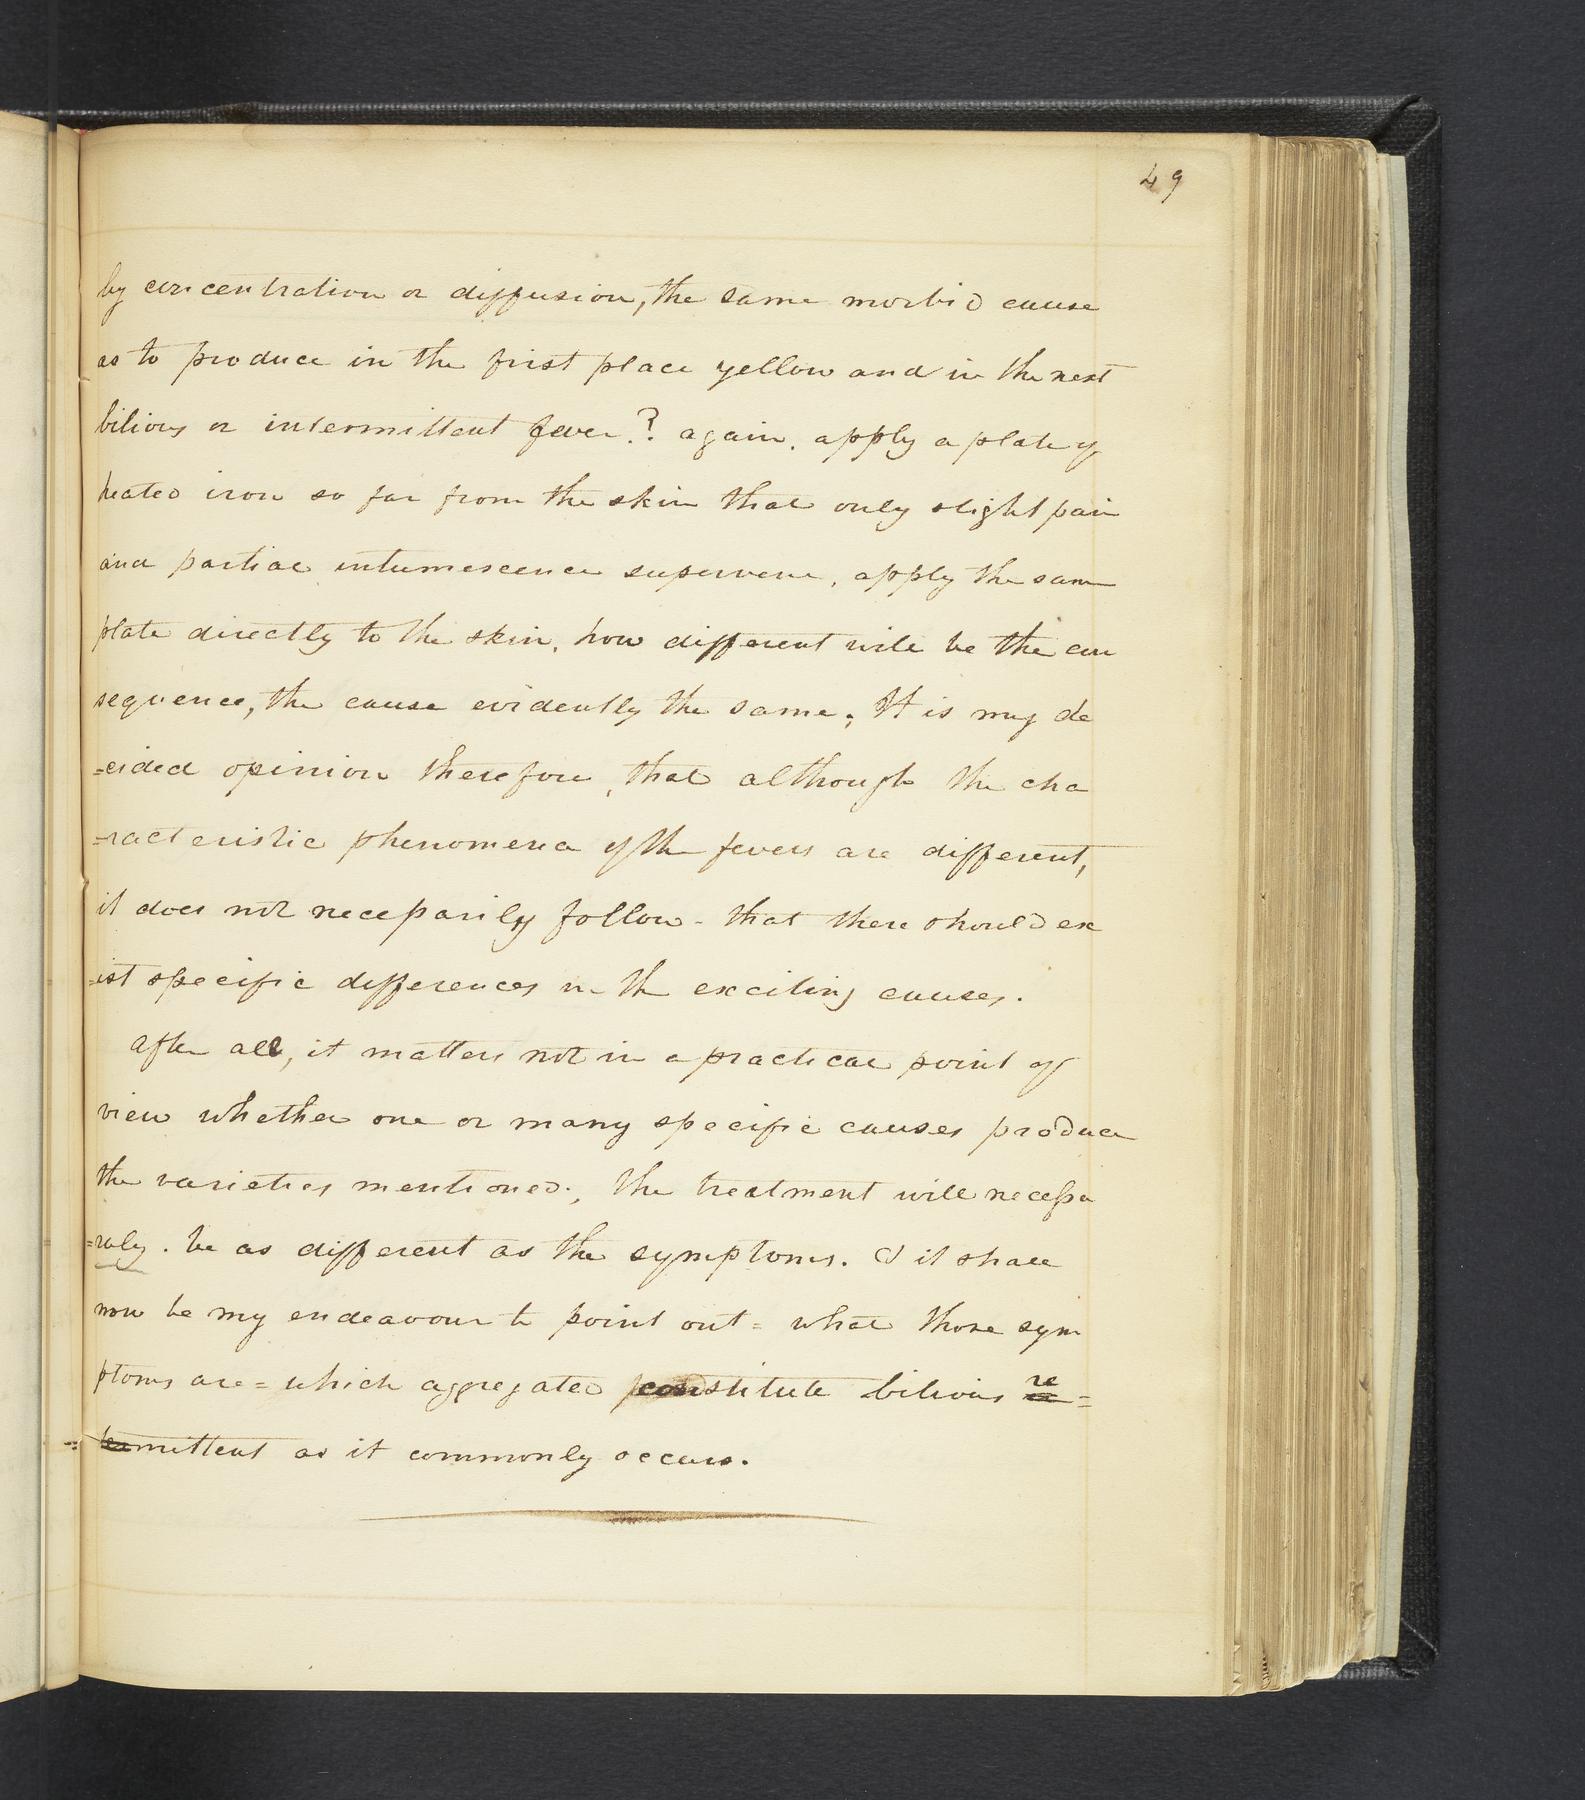 49
by concentration or diffusion, the same morbid cause
as to produce in the first place yellow and in the next
bilious or intermittent fever?? again, apply a plate of
heated iron so far from the skin that only slight pain
and partial intumescence supervene, apply the same
plate directly to the skin, how different will be the con
sequence, the cause evidently the same; It is my de
=cided opinion therefore, that although the cha
=racteristic phenomena of the fevers are different,
it does not necessarily follow - that there should ex
=ist specific differences in the exciting causes.
After all, it matters not in a practical point of
view whether one or many specific causes produce
the varieties mentioned; the treatment will necessa
=rily. be as different as the symptoms. & it shall
now be my endeavour to point out = what those sym
ptoms are = which aggregated constitute bilious re =
=mittent as it commonly occurs.